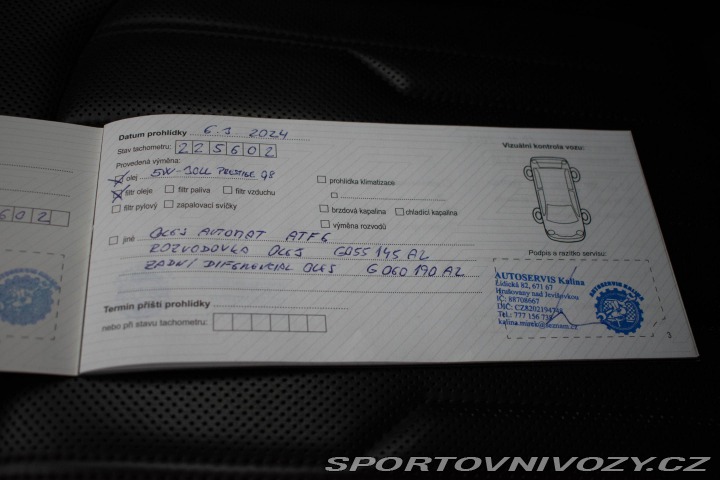 Datum prohlídky 6.3 2024
Stav tachometru: 225602
Provedená výměna:
olej 5W-30LL PRESTIGE Q8
filtr oleje filtr paliva filtr vzduchu
filtr pylový zapalovací svíčky
prohlídka klimatizace
brzdová kapalina chladící kapalina
výměna rozvodů
jiné OLEJ AUTOMAT ATF6
ROZVODOVKA OLEJ G055 145 A2
ZADNÍ DIFERENCIAL OLEJ G 060 190 A2
Termín příští prohlídky
nebo při stavu tachometru:
Vizuální kontrola vozu:
Podpis a razítko servisu:
AUTOSERVIS Kalina
Lidická 82, 671 67
Hrušovany nad Jevišovkou
IČ: 88708667
Tel.: 777 156 739
kalina.mirek@seznam.cz
AUTOSERVIS KALINA
3
602
SPORTOVNIVOZY.CZ